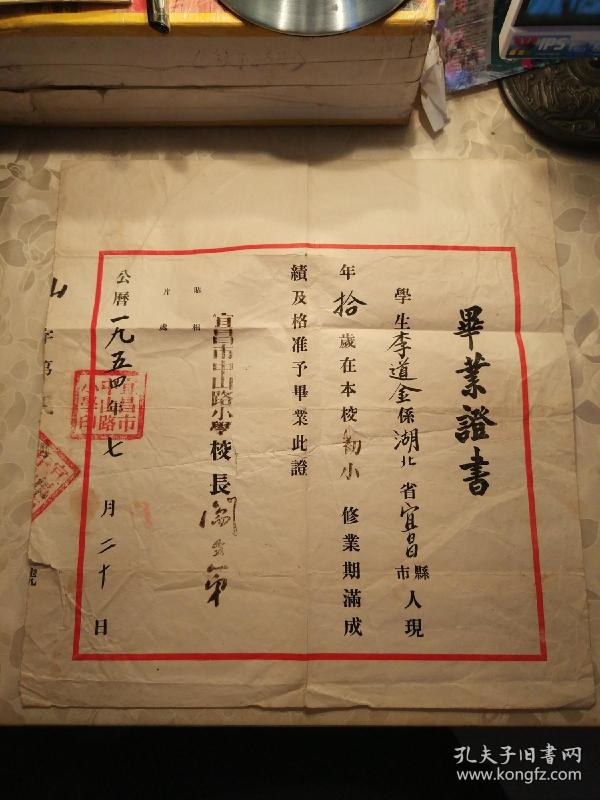 畢業證書
學生李道金係湖北省宜昌縣市人現
年拾歲在本校初小修業期滿成
績及格准予畢業此證
宜昌市中山路小學校長
貼相
片處
公曆一九五四年七月二十日
宜昌市
中山路
小學印
山字第
號
IPS
孔夫子旧书网
www.kongfz.com